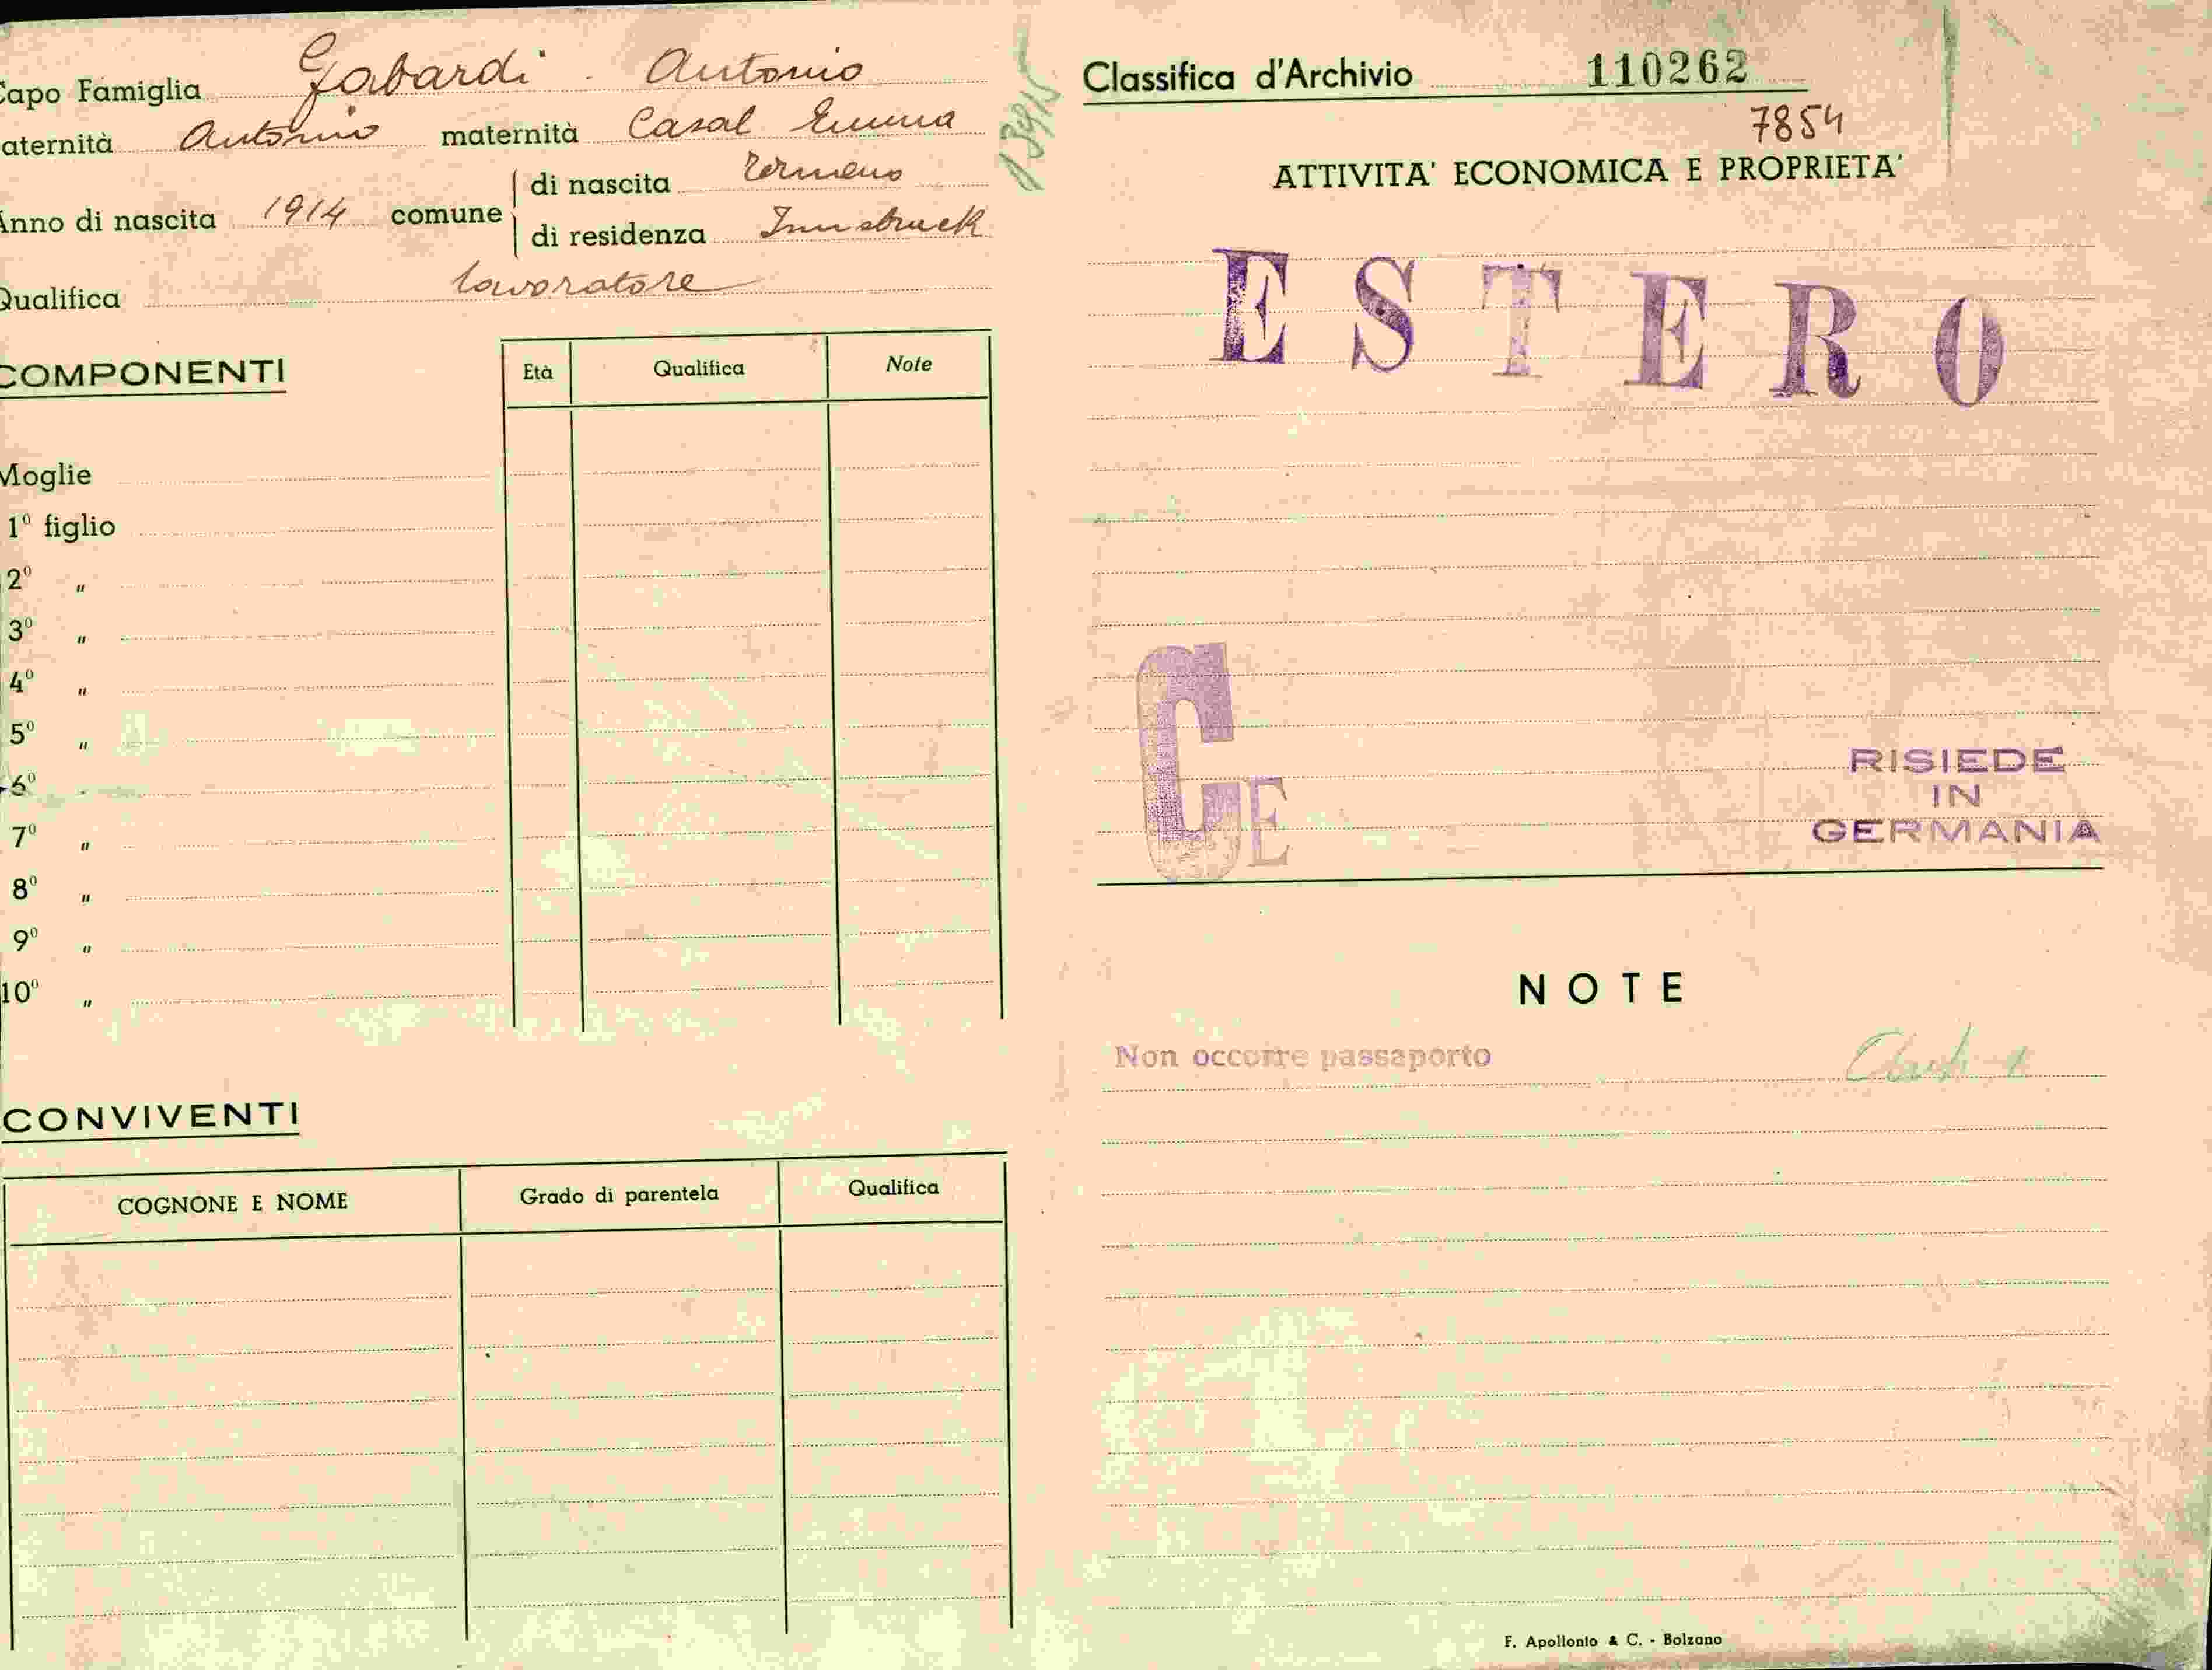 Capo Famiglia Gabardi Antonio
aternità Antonio maternità Casal Emma
Anno di nascita 1914 comune di nascita Termeno
di residenza Innsbruck
Qualifica lavoratore
COMPONENTI
Età Qualifica Note
Moglie
1º figlio
2º "
3º "
4º "
5º "
6º
7º "
8º "
9º "
10º "
CONVIVENTI
COGNONE E NOME Grado di parentela Qualifica
Classifica d'Archivio 110262
7854
ATTIVITA' ECONOMICA E PROPRIETA'
ESTERO
CE
RISIEDE
IN
GERMANIA
NOTE
Non occorre passaporto
F. Apollonio & C. - Bolzano